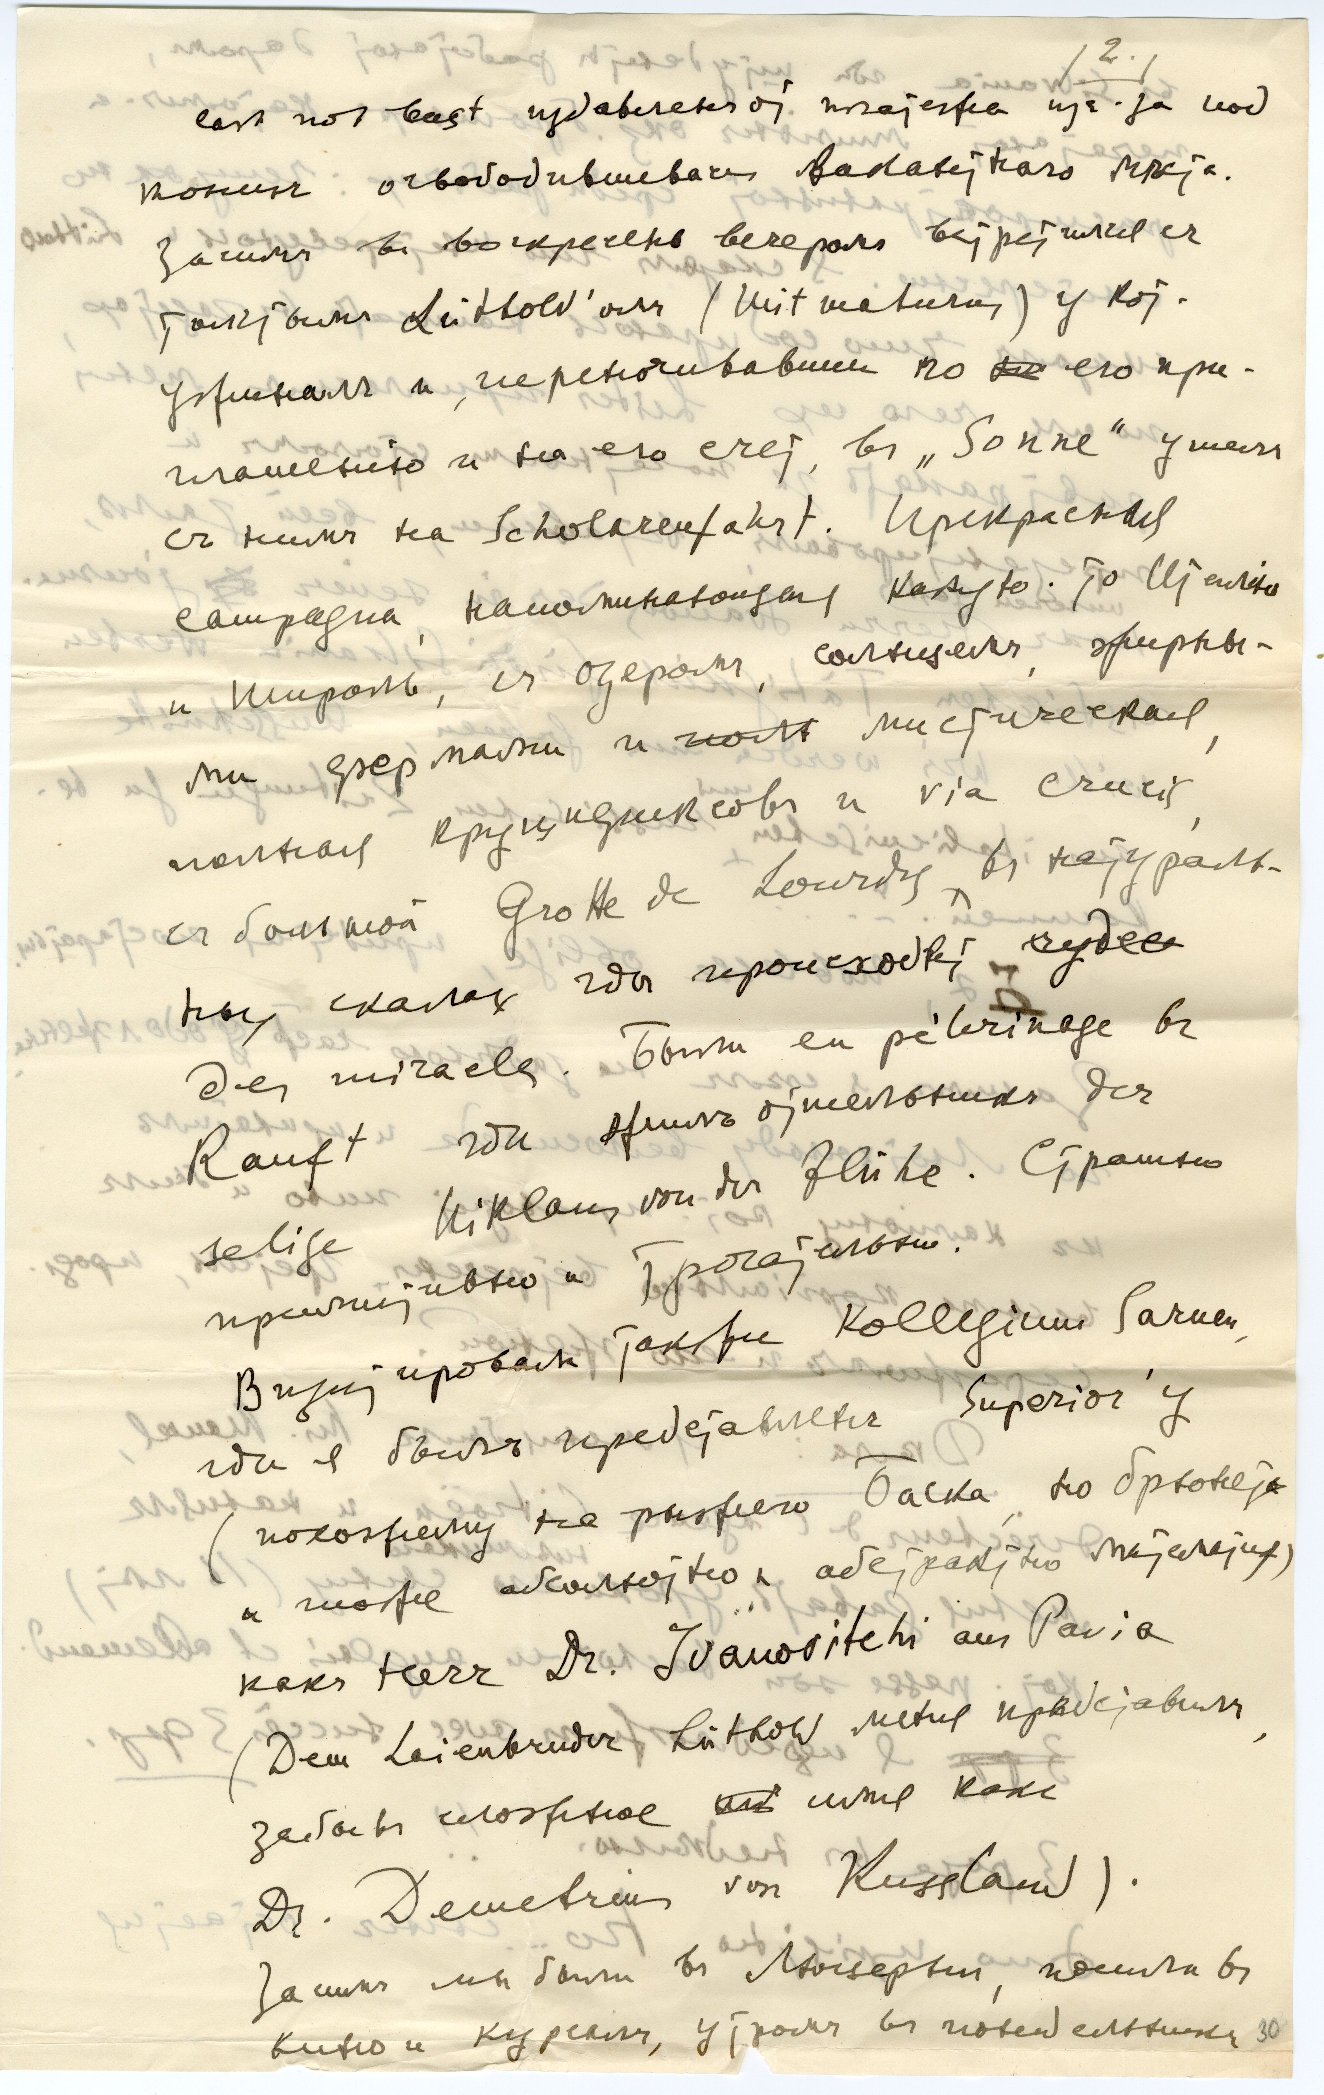 /2./
last not least издательской из-за под
конем освободившагося места.
Затем в воскресенье вечером встретился с
Lüthold'ом (Mitmaturus) у кот.
ужинал и, переночевавши по его при-
глашенію и на его счет, в „Sonne“ ушел
с ним на Scholarenfahrt. Прекрасная
campagna, напоминающая какую-то Италію
и Тироль, с озером, солнцем, жирны-
ми фермами и мистическая,
полная круцификсов и via crucis,
с большой Grotte de Lourdes, в натураль-
ных скалах где происходят
des miracles. Были en pèlerinage в
Ranft где жил отшельник der
selige Niklaus von der Flühe. Страшно
примитивно и трогательно.
Визитировали также Kollegium Sarnen,
где я был представлен Superior'у
(похожему на рыжего Баска, но брюнета
и тоже абсолютно и абстрактно)
как Herr Dr. Ivanovitchi aus Pavia
(Dem Laienbruder Lüthold меня представил,
забыв сложное имя как
Dr. Demetrius von Russland).
Затем мы были в Люцерне, пошли в
кино и курсаал, утром в понедельник
30